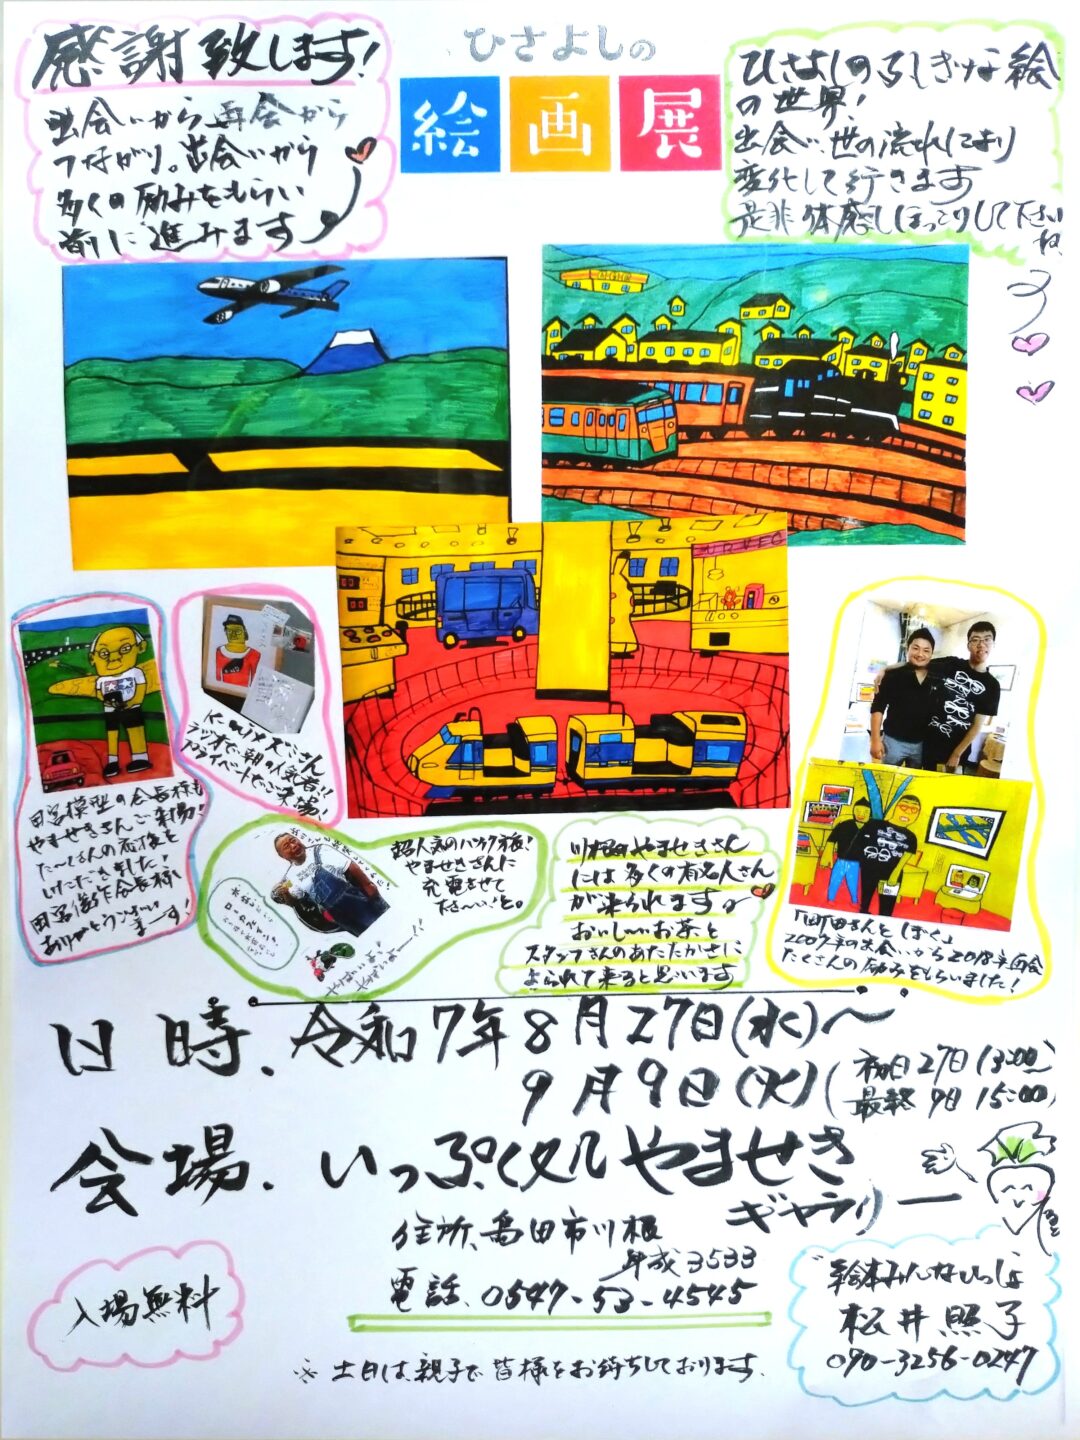 感謝致します!
出会いから再会から
つながり。出会いから
多くの励みをもらい
前に進みます
ひさよしの
絵画展
ひさよしのふしぎな絵
の世界!
出会い、世の流れにより
変化して行きます
是非体感しほっこりして下さい
ね
K-mixスごさん
ラジオで朝の人気者!!
プライベートでご来場!
田宮模型の会長様も
やませきさんご来場!
たくさんの応援を
いただきました!
田宮俊作会長様
ありがとうござい
ます!
超人気のパンク本板!
やませきさんに
充電させて
ださ〜い!と。
川根町やませきさん
には多くの有名人さん
が来られます
おいしいお茶と
スタッフさんのあたたかさに
よられて来ると思います
「町田さんとぼく」
2007年の出会いから2018年再会
たくさんの励みをもらいました!
日時、令和7年8月27日(水)〜
9月9日(火)
(初日27日13:00〜
最終9日15:00)
会場、いっぷく処やませき
ギャラリー
住所、島田市川根
平成3533
電話、0547-53-4545
入場無料
絵本みんないっしょ
松井照子
090-3256-0247
※土日は、親子で皆様をお待ちしております。